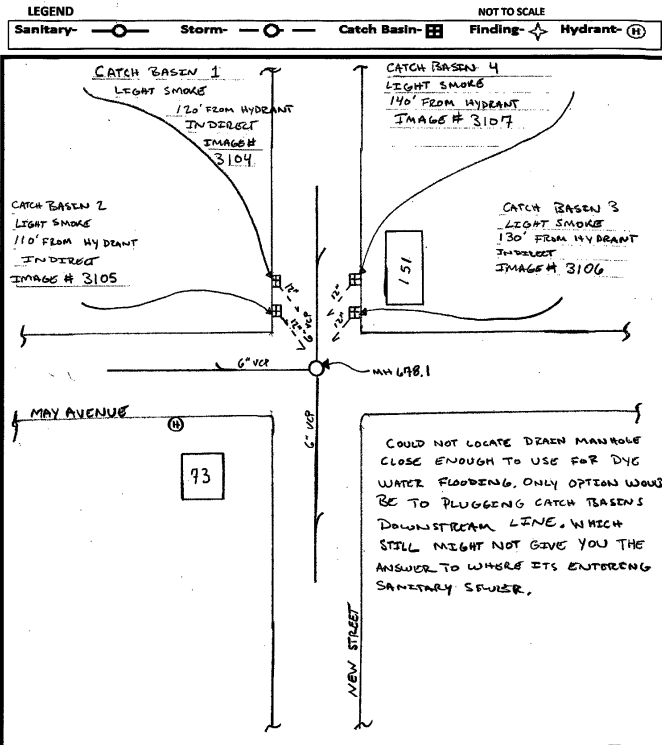 LEGEND
NOT TO SCALE
Sanitary-
Storm-
Catch Basin-
Finding-
Hydrant- H
CATCH BASIN 1
LIGHT SMOKE
120' FROM HYDRANT
INDIRECT
IMAGE #
3104
CATCH BASIN 4
LIGHT SMOKE
140' FROM HYDRANT
IMAGE # 3107
CATCH BASIN 2
LIGHT SMOKE
110' FROM HYDRANT
INDIRECT
IMAGE # 3105
CATCH BASIN 3
LIGHT SMOKE
130' FROM HYDRANT
INDIRECT
IMAGE # 3106
151
12"
12"
12"
12"
6" VCP
6" VCP
MH 678.1
MAY AVENUE
H
6" VCP
73
COULD NOT LOCATE DRAIN MANHOLE
CLOSE ENOUGH TO USE FOR DYE
WATER FLOODING. ONLY OPTION WOUD
BE TO PLUGGING CATCH BASINS
DOWNSTREAM LINE. WHICH
STILL MIGHT NOT GIVE YOU THE
ANSWER TO WHERE ITS ENTERING
SANITARY SEWER.
NEW STREET